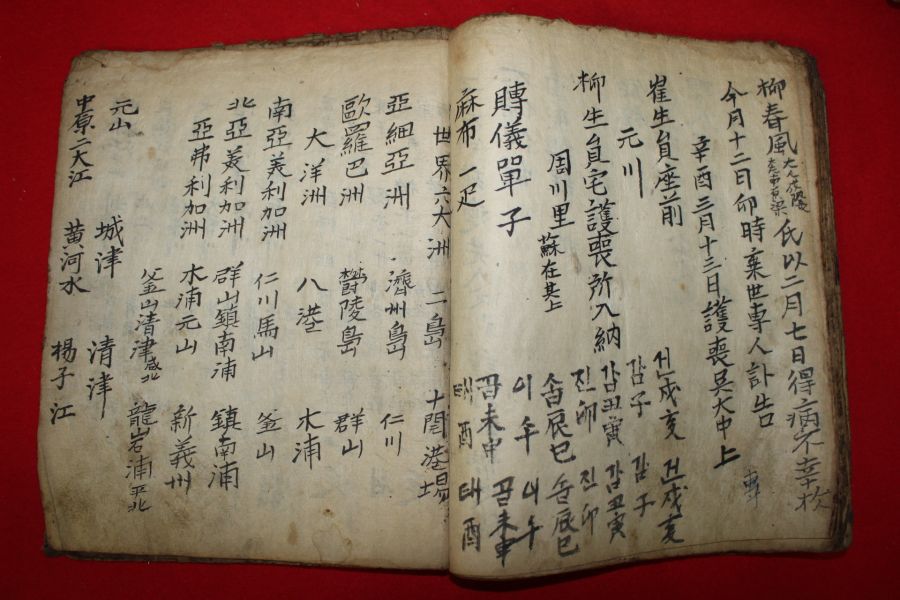 柳春風 大人 氏以二月七日得病不幸於
今月十二日卯時棄世專人訃告
辛酉三月十三日護喪吳大中上
崔生員座前
元川
柳生員宅護喪所入納
周川里 蘇在基上
賻儀單子
麻布 一疋
건戌亥 건戌亥
감子 감子
감丑寅 감丑寅
진卯 진卯
손辰巳 손辰巳
이午 이午
곤未申 곤未申
태酉 태酉
世界六大洲 二島 十開港場
亞細亞洲 濟州島 仁川
歐羅巴洲 欝陵島 群山
大洋洲 八港 木浦
南亞美利加洲 仁川馬山 釜山
北亞美利加洲 群山鎮南浦 鎮南浦
亞弗利加洲 木浦元山 新義州
釜山清津 咸北 龍岩浦 平北
元山 城津 清津
中原二大江 黃河水 楊子江